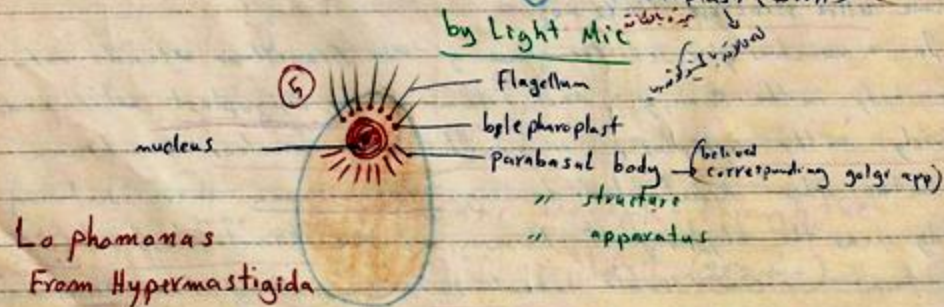 by Light Mic
5
Flagellum
blepharoplast
nucleus
parabasal body → (belived corresponding golgi app)
〃 structure
〃 apparatus
Lophomonas
From Hypermastigida